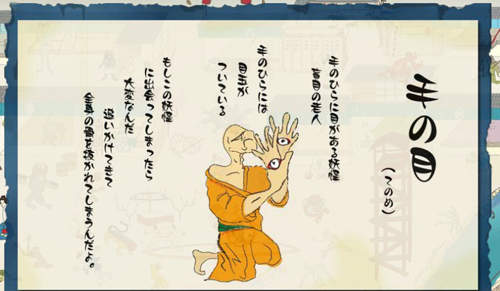 手の目
(てのめ)
手のひらに目がある妖怪
盲目の老人
手のひらには
目玉が
ついている
もしこの妖怪
に出会ってしまったら
大変なんだ
追いかけてきて
全身の骨を抜かれてしまうんだよ。